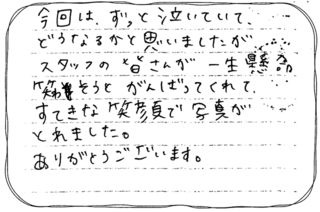 今回は、ずっと泣いていて、
どうなるかと思いましたが
スタッフの皆さんが一生懸命
笑わそうとがんばってくれて、
すてきな笑顔で写真が
とれました。
ありがとうございます。